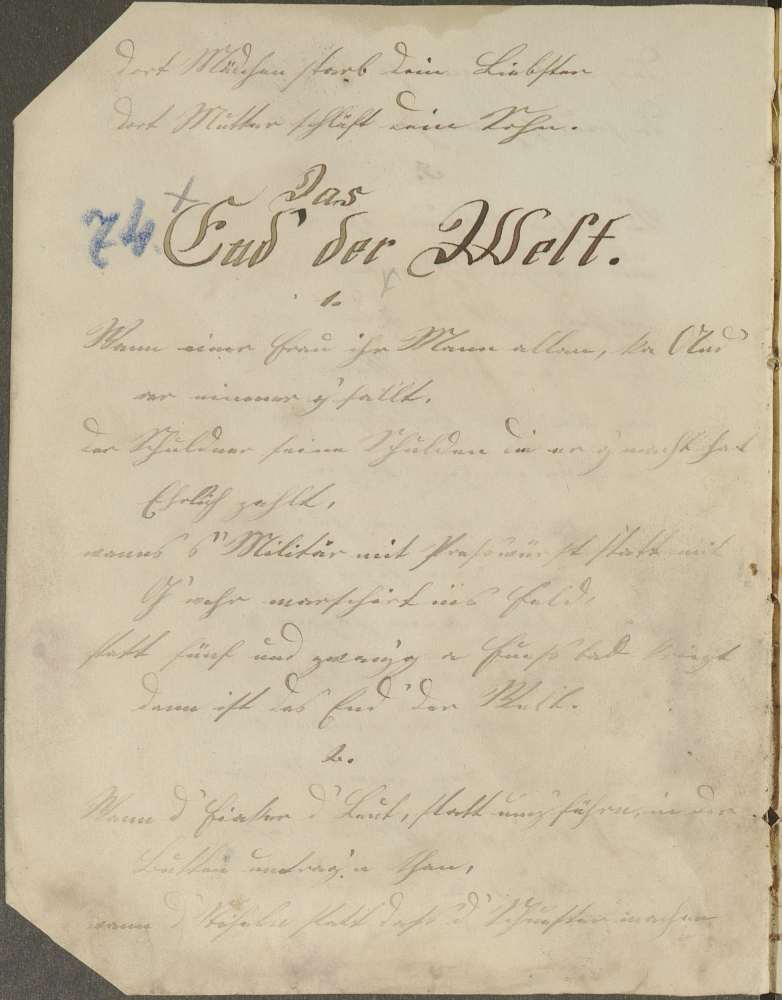 dort Mädchen starb dein Liebster
dort Mutter schläft dein Sohn.
74. Das
End' der Welt.
1.
Wann einer Frau ihr Mann allan, ka And'
er nimmer g'fallt,
der Schuldner seine Schulden die er g'macht hat
Ehrlich zahlt,
wanns s' Militär mit Presswürst statt mit
G'wehr marschirt ins Feld,
statt fünf und zwanz'g a Fussbad kriegt
dann ist das End' der Welt.
2.
Wann d' Fiaker d' Leut, statt umz'führn, in der
Butten umtrag'n than,
wann d' statt dass d' Schuster machen